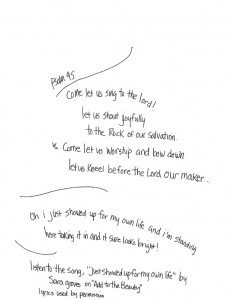 Psalm 95
Come let us sing to the lord!
let us shout joyfully
to the Rock of our salvation.
Come let us worship and bow down
let us kneel before the Lord our maker...
Oh i just showed up for my own life and i'm standing
here taking it in and it sure looks bright!
listen to the song, "just showed up for my own life" by
Sara groves on "Add to the Beauty"
lyrics used by permission